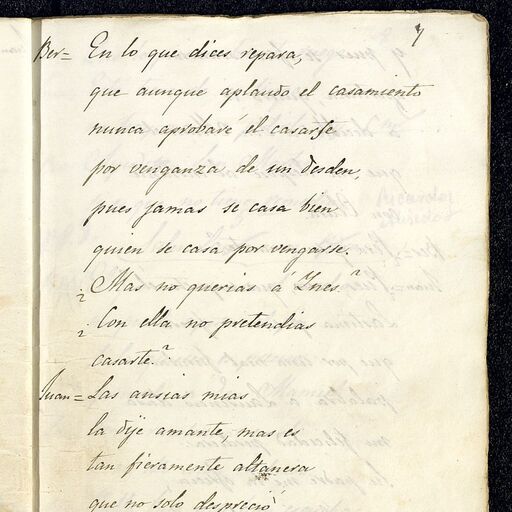 7
Ber= En lo que dices repara,
que aunque aplaudo el casamiento
nunca aprobaré el casarse
por venganza de un desden,
pues jamas se casa bien
quien se casa por vengarse.
¿Mas no querias á Ynes?
¿Con ella no pretendias
casarte?
Juan= Las ansias mias
la dije amante, mas es
tan fieramente altanera
que no solo despreció